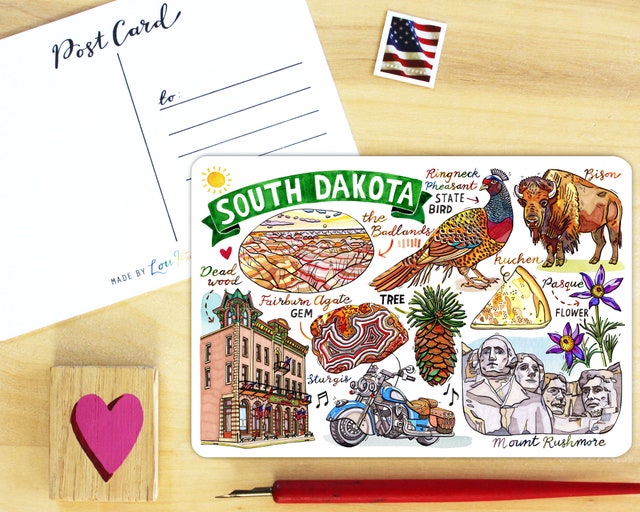 Post Card
to:
MADE BY Lou
SOUTH DAKOTA
the
Badlands
Ringneck
Pheasant
STATE
BIRD
Bison
Dead
wood
Fairburn Agate
GEM
TREE
kuchen
Pasque
FLOWER
Sturgis
Mount Rushmore